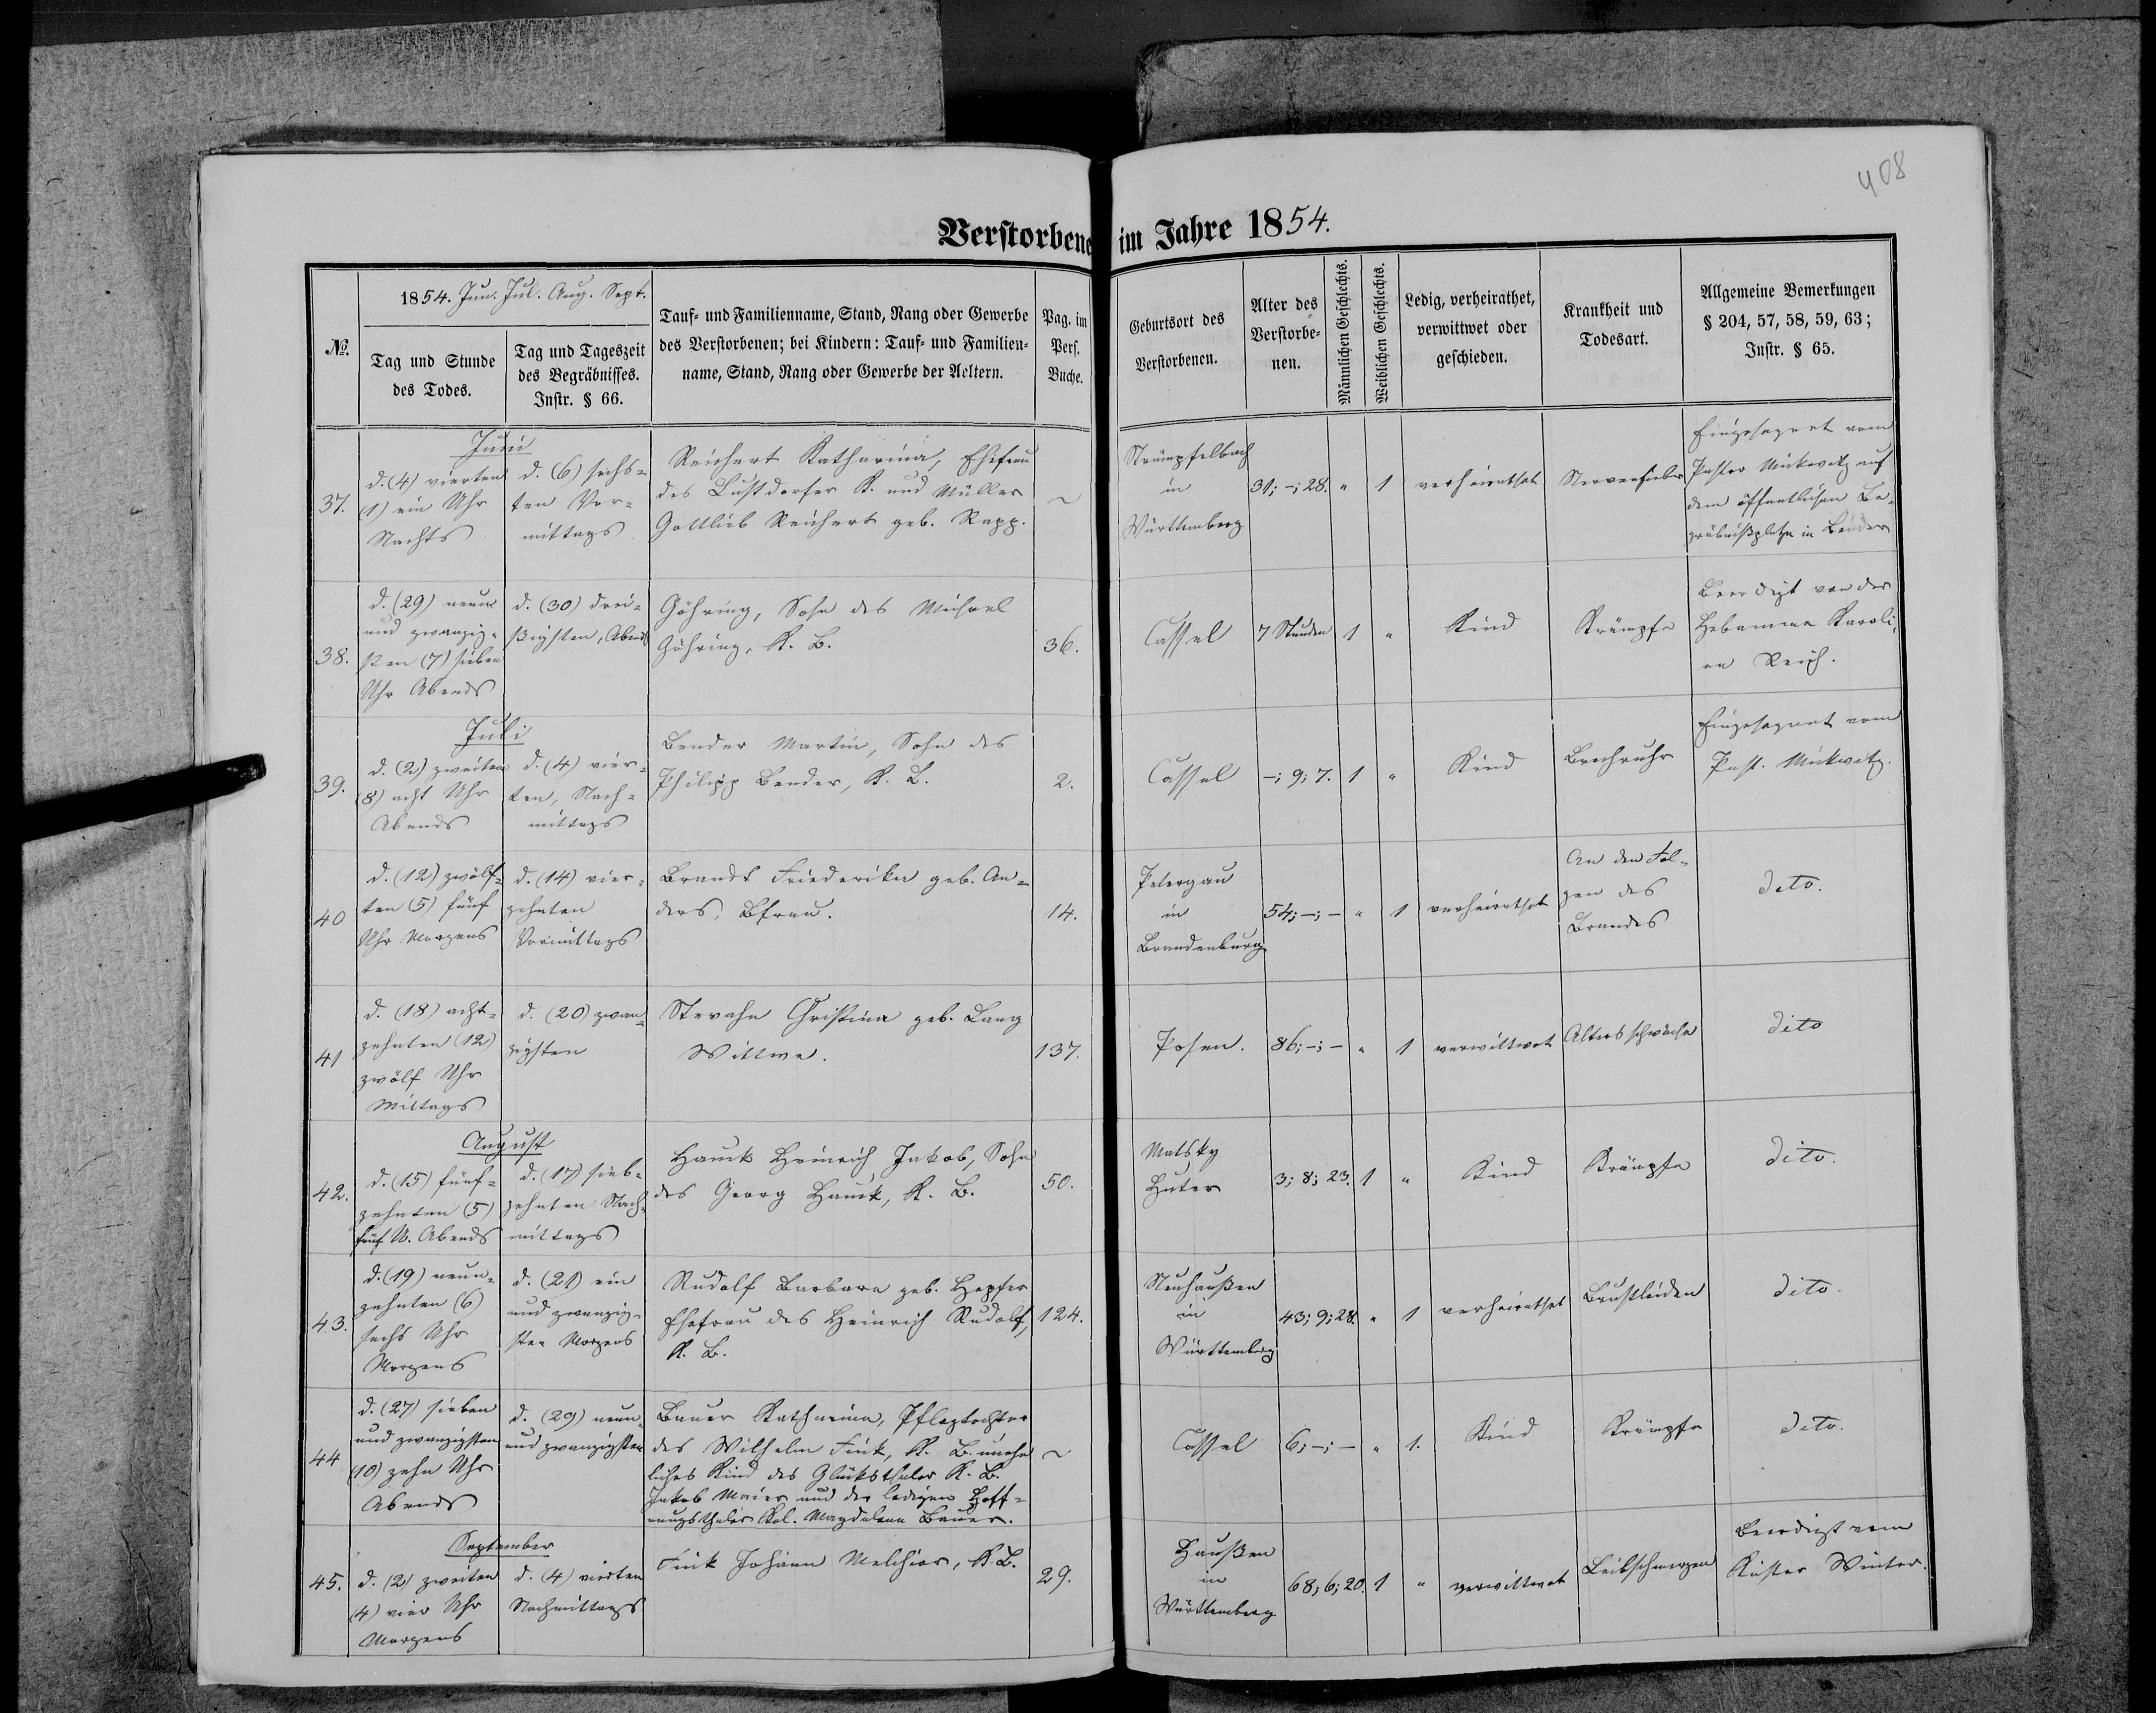 408
Verstorbene im Jahre 1854.
№.
1854. Jun. Jul. Aug. Sept.
Tag und Stunde
des Todes.
Tag und Tageszeit
des Begräbnisses.
Instr. § 66.
Tauf- und Familienname, Stand, Rang oder Gewerbe
des Verstorbenen; bei Kindern: Tauf- und Familien-
name, Stand, Rang oder Gewerbe der Aeltern.
Pag. im
Pers.
Buche.
Geburtsort des
Verstorbenen.
Alter des
Verstorbe-
nen.
Männlichen Geschlechts.
Weiblichen Geschlechts.
Ledig, verheirathet,
verwittwet oder
geschieden.
Krankheit und
Todesart.
Allgemeine Bemerkungen
§ 204, 57, 58, 59, 63;
Instr. § 65.
Juni
37.
d. (4) vierten
(1) ein Uhr
Nachts
d. (6) sechs-
ten Vor-
mittags
Reichert Katharina, Ehefrau
des Lustdorfer K. und Müller
Gottlieb Reichert geb. Rapp.
~
Strümpfelbach
in
Württemberg
31; -; 28.
"
1
verheirathet
Nervenfieber
Eingesegnet vom
Pastor Mickwitz auf
dem öffentlichen Be-
gräbnißplatze in Bender
38.
d. (29) neun
und zwanzig-
sten (7) sieben
Uhr Abends
d. (30) drei-
ßigsten, Abends
Göhring, Sohn des Michael
Göhring, K. B.
36.
Cassel
7 Stunden
1
"
Kind
Krämpfe
Beerdigt von der
Hebamme Karoli-
ne Reich.
Juli
39.
d. (2) zweiten
(8) acht Uhr
Abends
d. (4) vier-
ten, Nach-
mittags
Bender Martin, Sohn des
Philipp Bender, K. B.
2.
Cassel
-; 9; 7.
1
"
Kind
Brechruhr
Eingesegnet vom
Past. Mickwitz.
40
d. (12) zwölf-
ten (5) fünf
Uhr Morgens
d. (14) vier-
zehnten
Vormittags
Brandt Friederike geb. An-
ders, Bfrau.
14.
Petergau
in
Brandenburg
54; -; -
"
1
verheirathet
An den Fol-
gen des
Brandes
dito.
41
d. (18) acht-
zehnten (12)
zwölf Uhr
Mittags
d. (20) zwan-
zigsten
Stevahn Christina geb. Lang
Wittwe.
137.
Posen.
86; -; -
"
1
verwittwet
Altersschwäche
dito
August
42.
d. (15) fünf-
zehnten (5)
fünf U. Abends
d. (17) sieb-
zehnten Nach-
mittags
Hauck Heinrich Jakob, Sohn
des Georg Hauck, K. B.
50.
Matsky
Huter
3; 8; 23.
1
"
Kind
Krämpfe
dito.
43.
d. (19) neun-
zehnten (6)
sechs Uhr
Morgens
d. (21) ein
und zwanzig-
sten Morgens
Rudolf Barbara geb. Hepfer
Ehefrau des Heinrich Rudolf,
K. B.
124.
Neuhaußen
in
Württemberg
43; 9; 28.
"
1
verheirathet
Brustleiden
dito.
44
d. (27) sieben
und zwanzigsten
(10) zehn Uhr
Abends
d. (29) neun
und zwanzigsten
Bauer Katharina, Pflegtochter
des Wilhelm Fink, K. B. unehe-
liches Kind des Glücksthaler K. B.
Jakob Maier und der ledigen Hoff-
nungsthaler Kol. Magdalena Bauer.
~
Cassel
6; -; -
"
1.
Kind
Krämpfe
dito.
September
45.
d. (2) zweiten
(4) vier Uhr
Morgens
d. (4) vierten
Nachmittags
Fink Johann Melchior, K. B.
29.
Haußen
in
Württemberg
68; 6; 20.
1
"
verwittwet
Leibschmerzen
Beerdigt vom
Küster Winter.